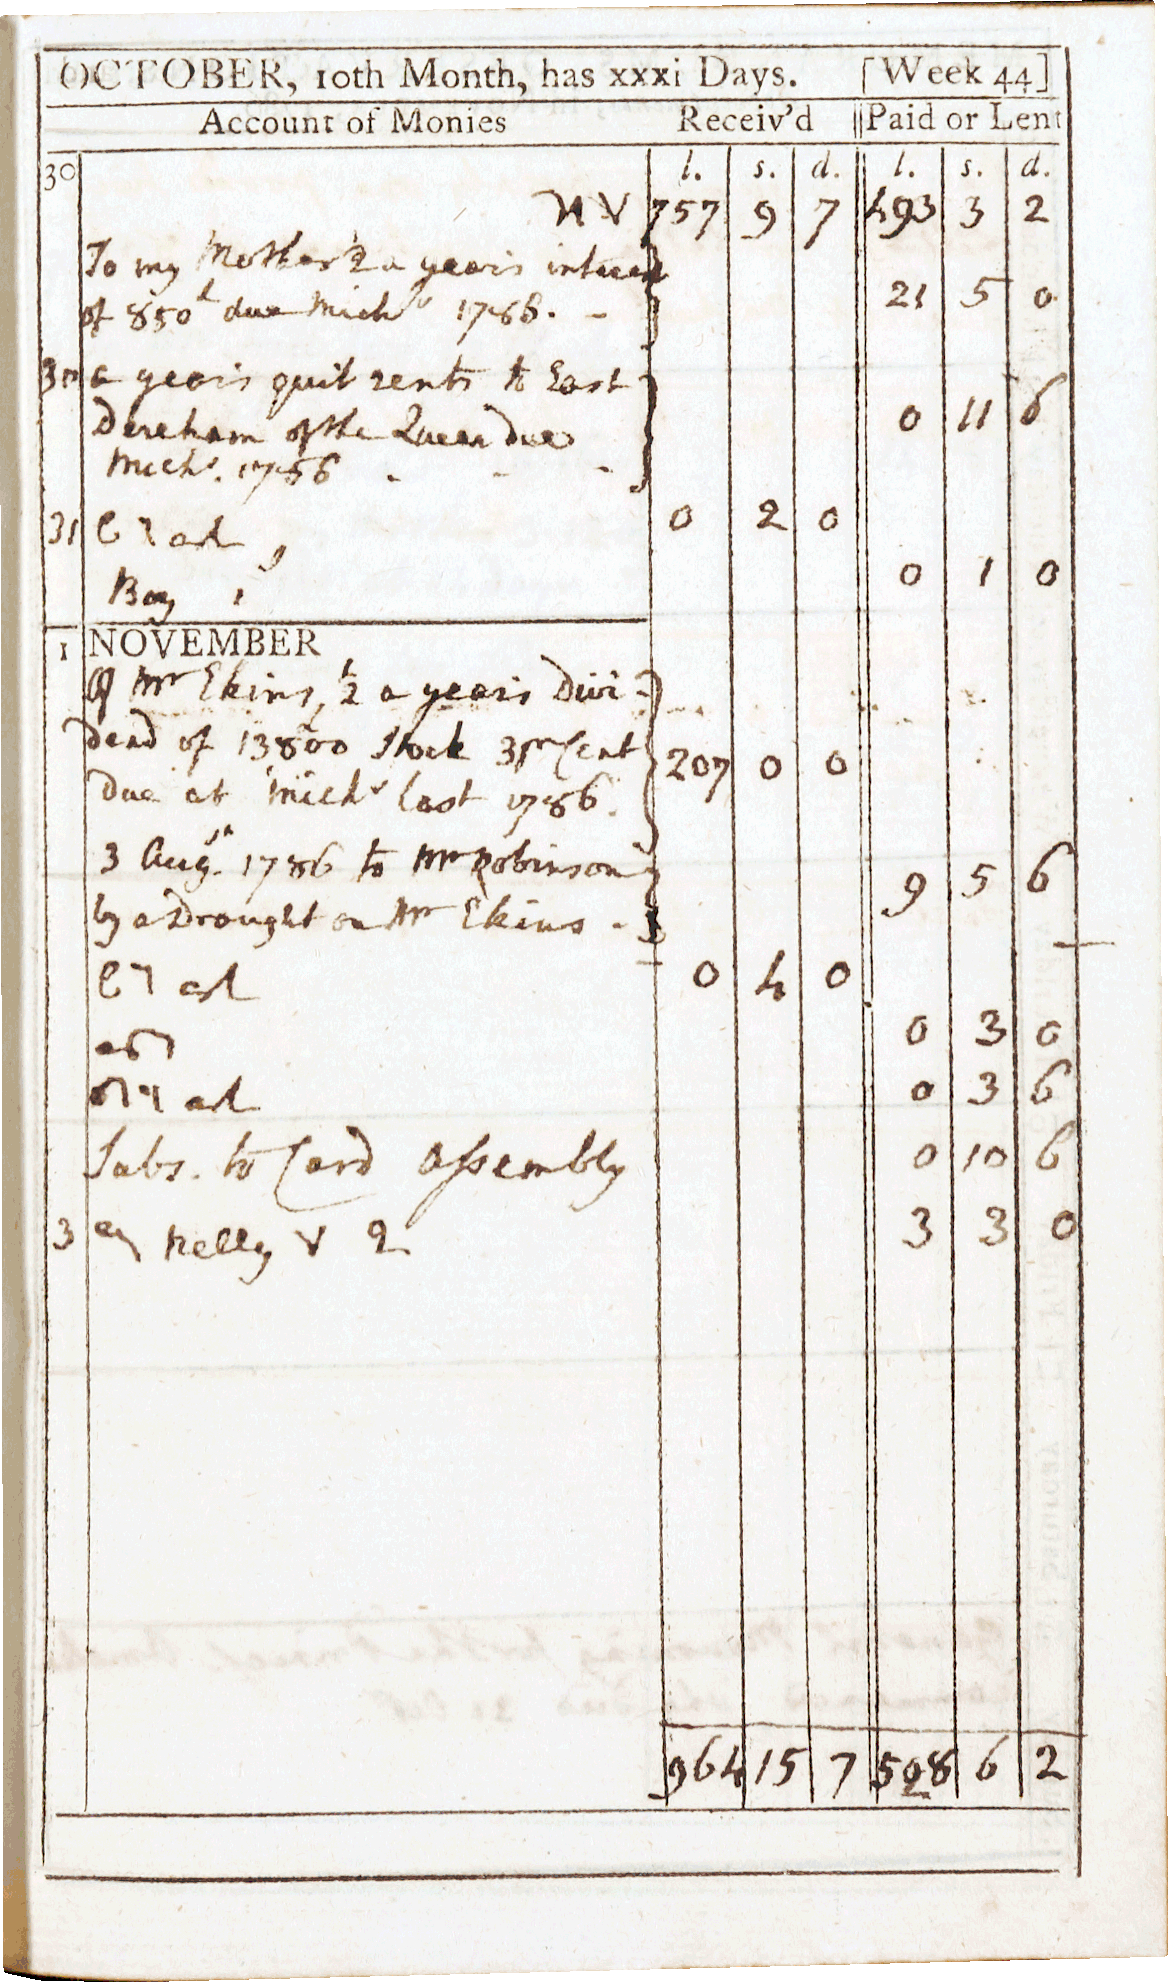 OCTOBER, 10th Month, has xxxi Days. [Week 44]
Account of Monies Receiv'd Paid or Lent
30 l. s. d. l. s. d.
757 9 7 493 3 2
To my Mother ½ a year's interest
of 850l due Michs 1786. - 21 5 0
30 a year's quit rents to East
Dereham of the Queen due 0 11 6
Michs. 1786 - - -
31 0 2 0
Boy 0 1 0
1 NOVEMBER
Of Mr Ekins, ½ a year's Divi-
dend of 13800 Stock 3 pr Cent 207 0 0
Due at Michs last 1786.
3 Augst. 1786 to Mr Robinson
by a Drought on Mr Ekins - 9 5 6
0 4 0
0 3 0
0 3 6
Subs. to Card Assembly 0 10 6
3 Nelly 3 3 0
964 15 7 508 6 2